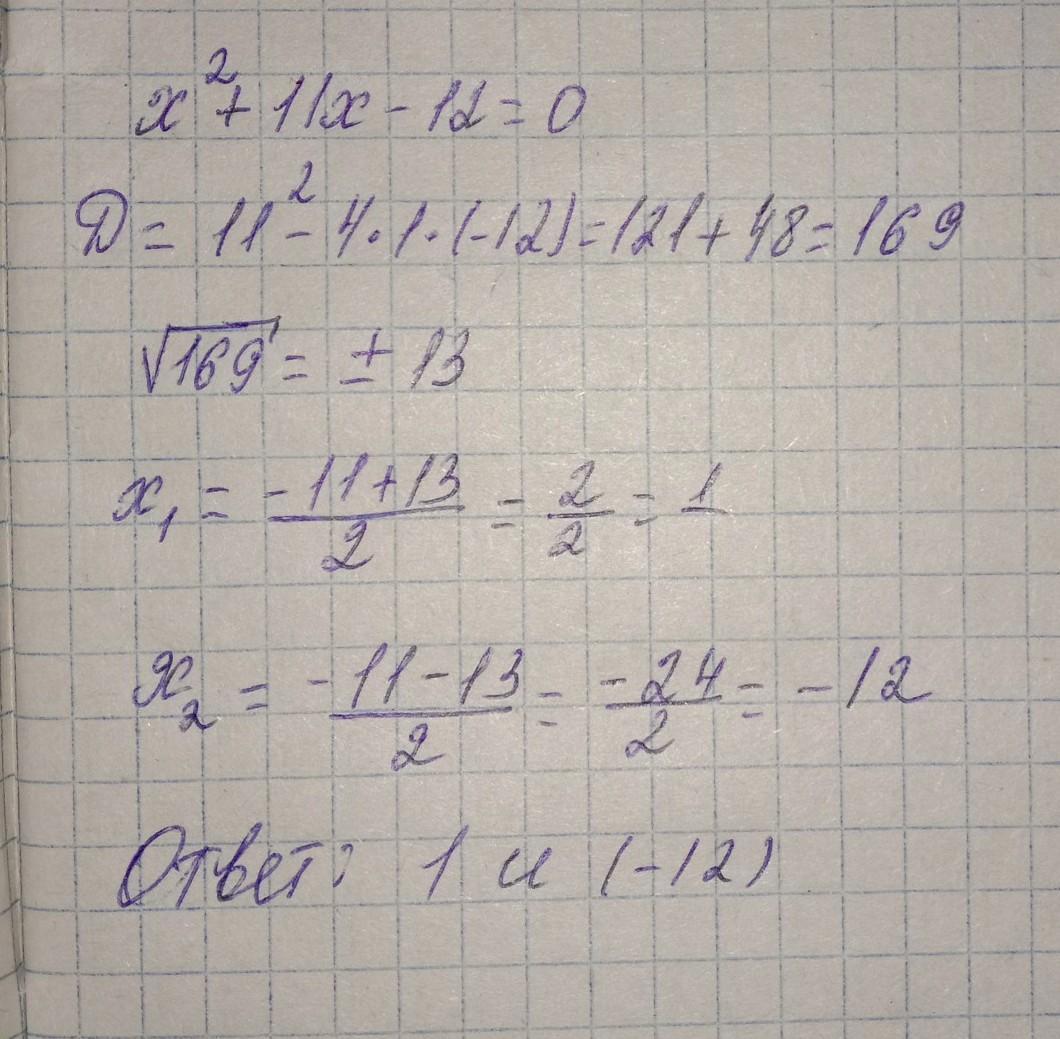 x² + 11x - 12 = 0
D = 11² - 4·1·(-12) = 121 + 48 = 169
√169 = ± 13
x₁ = (-11+13)/2 = 2/2 = 1
x₂ = (-11-13)/2 = -24/2 = -12
Ответ: 1 и (-12)